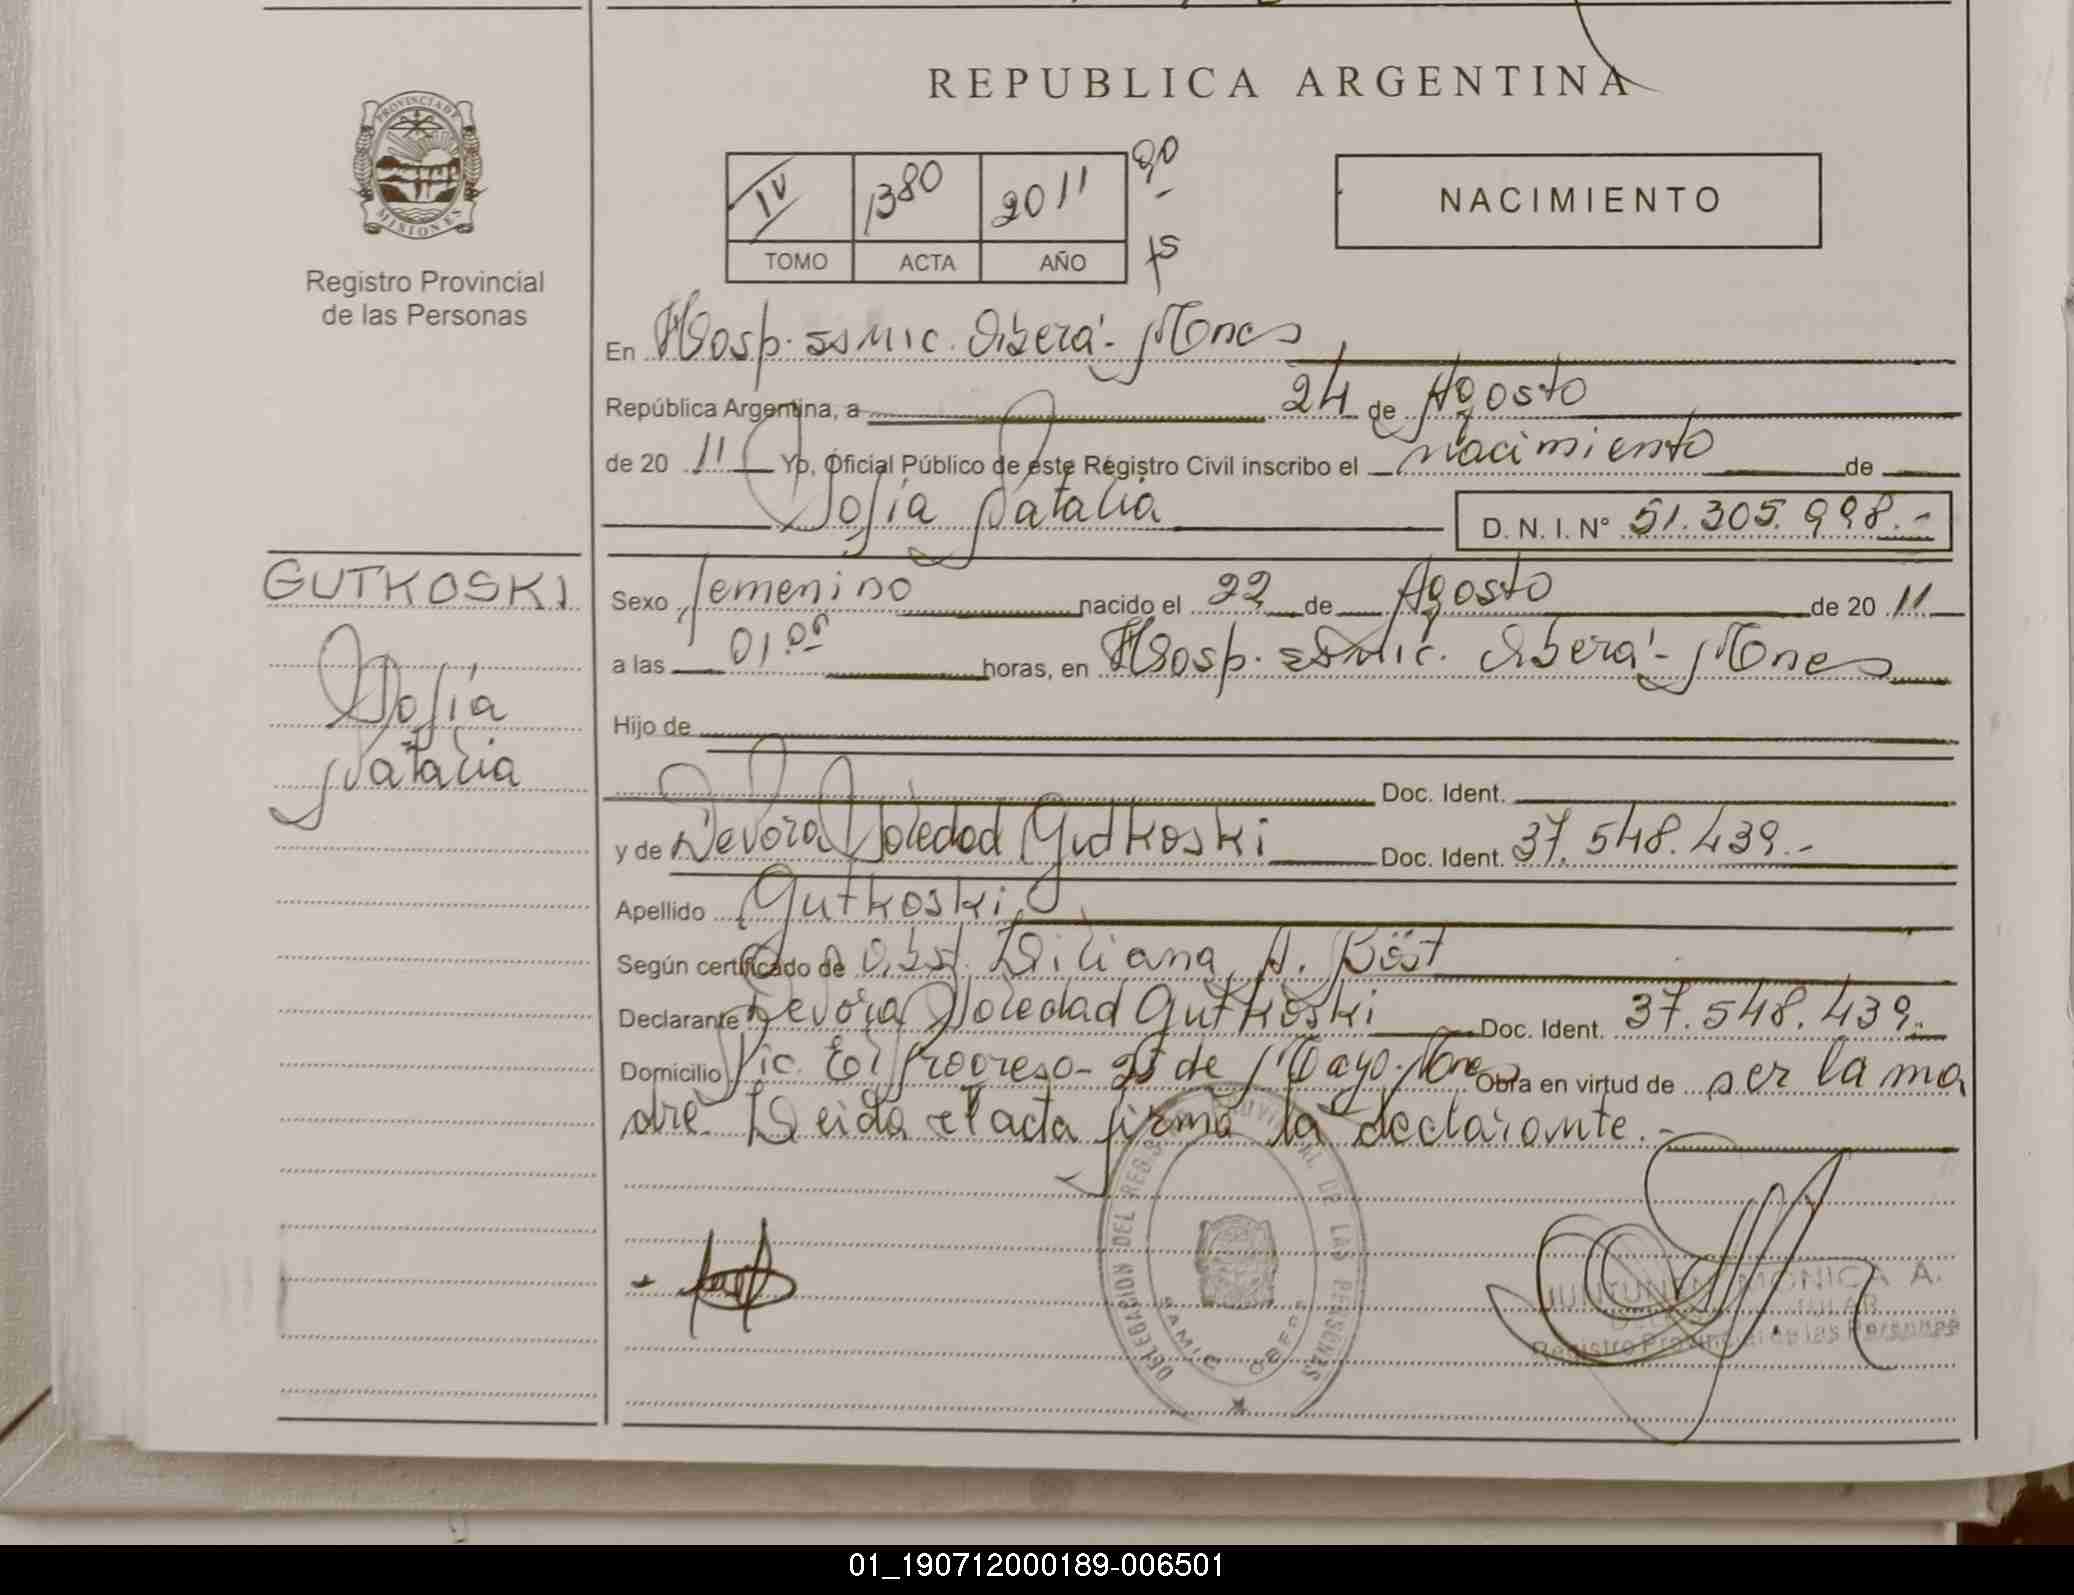 REPUBLICA ARGENTINA
PROVINCIA DE
MISIONES
Registro Provincial
de las Personas
IV 1380 2011
TOMO ACTA AÑO
NACIMIENTO
En Hosp. SAMIC. Oberá - Mnes
República Argentina, a 24 de Agosto
de 20 11 Yo, Oficial Público de este Registro Civil inscribo el nacimiento de
Sofía Natalia D. N. I. N° 51.305.998.-
GUTKOSKI
Sofía
Natalia
Sexo femenino nacido el 22 de Agosto de 20 11
a las 01.05 horas, en Hosp. SAMIC. Oberá - Mnes
Hijo de
Doc. Ident.
y de Devora Soledad Gutkoski Doc. Ident. 37.548.439.-
Apellido Gutkoski
Según certificado de Obst. Liliana A. Böst
Declarante Devora Soledad Gutkoski Doc. Ident. 37.548.439.-
Domicilio Pic. El Progreso - 25 de Mayo. Mnes Obra en virtud de ser la ma
dre. Leida el acta firma la declarante.-
DELEGACION DEL REGISTRO PROVINCIAL DE LAS PERSONAS
SAMIC OBERA
MONICA A.
Registro Provincial de las Personas
01_190712000189-006501